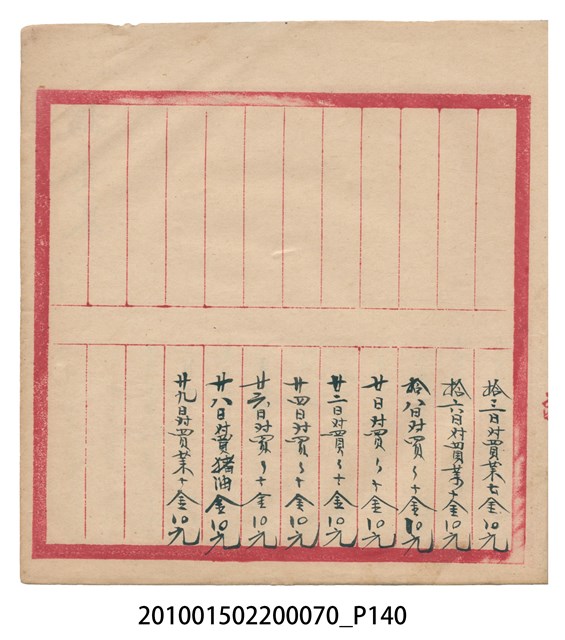 拾三日对買菜七金10元
拾六日对買菜十金10元
拾八日对買〻十金10元
廿日对買〻十金10元
廿二日对買〻十金10元
廿四日对買〻十金10元
廿六日对買〻十金10元
廿八日对買猪油金10元
廿九日对買菜十金10元
201001502200070_P140